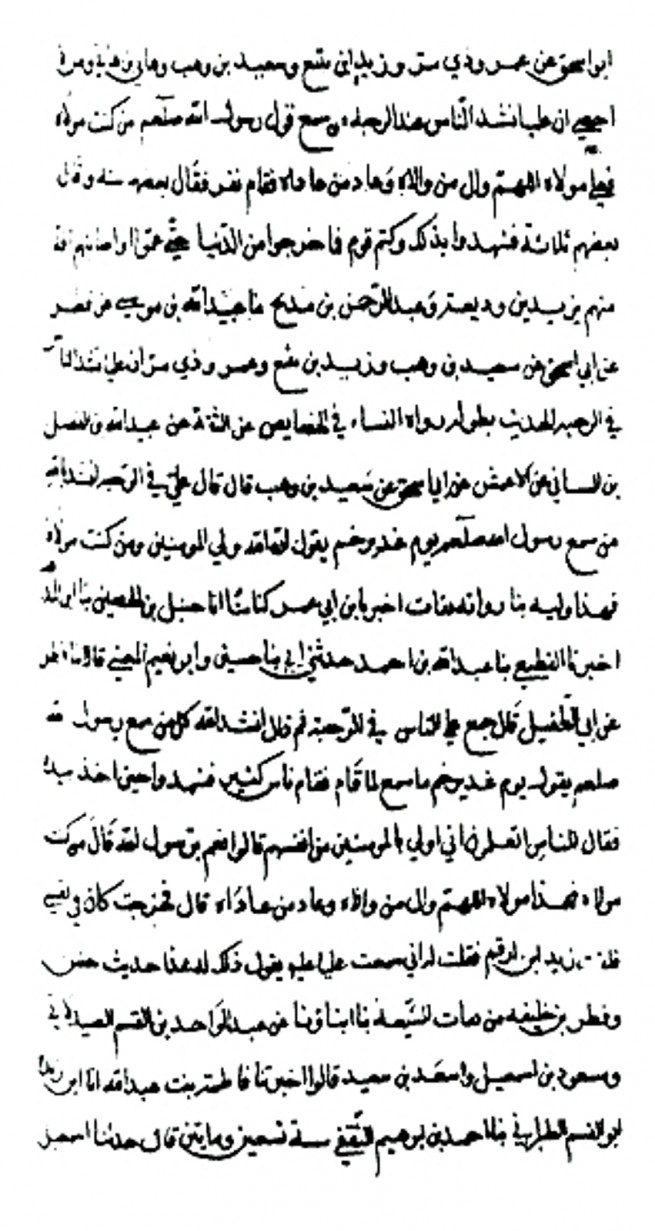 ابو اسحق عن عمرو ذي مر وزيد بن يثيع وسعيد بن وهب وهاني بن هاني ومن
ان عليا نشد الناس عند الرحبه من سمع قول رسول الله صلعم من كنت مولاه
فعلي مولاه اللهم وال من والاه وعاد من عاداه فقام نفر فقال بعضهم سته وقال
بعضهم ثلاثة فشهدوا بذلك وكتم قوم فما خرجوا من الدنيا حتى عموا او اصابتهم افة
منهم يزيد بن وديعة وعبد الرحمن بن مدلج عبيد الله بن موسى عن فطر
عن ابي اسحق عن سعيد بن وهب وزيد بن يثيع وعمرو ذي مر ان عليا نشد الناس
في الرحبه الحديث بطوله رواه النساء في الخصايص عن الثقة عن عبد الله الفضل
بن عن الاعمش عن ابي اسحق عن سعيد بن وهب قال قال علي في الرحبه انشد بالله
من سمع رسول الله صلعم يوم غدير خم يقول ان الله ولي المومنين ومن كنت مولاه
فهذا وليه رواته ثقات اخبرنا ابن ابي عمر كتابتا انا حنبل بن الحصين
اخبرنا القطيعي ثنا عبد الله بن احمد حدثني ابي ثنا حسين وابو نعيم المعني قالا ثنا فطر
عن ابي الطفيل قال جمع علي الناس في الرحبة ثم قال انشد الله كل من سمع رسول الله
صلعم يقول يوم غدير خم ما سمع لما قام فقام ناس كثير فشهدوا حين اخذ بيده
فقال للناس اتعلمون اني اولي بالمومنين من انفسهم قالوا نعم يا رسول الله قال من كنت
مولاه فهذا مولاه اللهم وال من والاه وعاد من عاداه قال فخرجت كان في نفسي
زيد ابن ارقم فقلت له اني سمعت عليا يقول ذلك له هذا حديث حسن
وفطر بن خليفه من ثقات الشيعة انباونا عن عبد الواحد بن القسم الصيدلاني
ومسعود بن اسمعيل واسعد بن سعيد قالوا اخبرتنا فاطمة بنت عبد الله انا ابن ريذه
ابو القسم الطبراني ثنا احمد بن ابرهيم الثقفي سنة تسعين ومايتين قال حدثنا اسمعيل